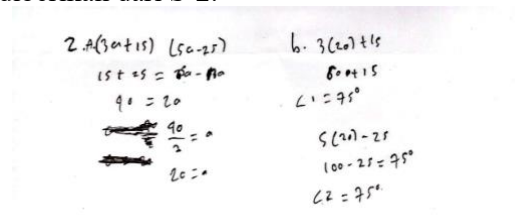 2. A (3a+15) (5a-25)
15 + 25 = 5a - 3a
40 = 2a
40/2 = a
20 = a
b. 3(20)+15
60+15
∠1 = 75°
5(20)-25
100-25 = 75°
∠2 = 75°